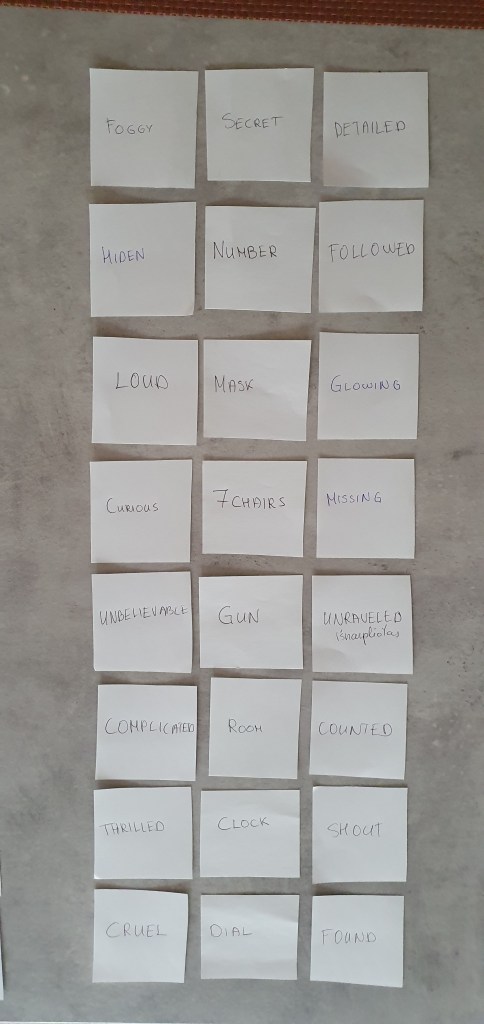 FOGGY
SECRET
DETAILED
HIDEN
NUMBER
FOLLOWED
LOUD
MASK
GLOWING
CURIOUS
7 CHAIRS
MISSING
UNBELIEVABLE
GUN
UNRAVELED
išnarpliotas
COMPLICATED
ROOM
COUNTED
THRILLED
CLOCK
SHOUT
CRUEL
DIAL
FOUND